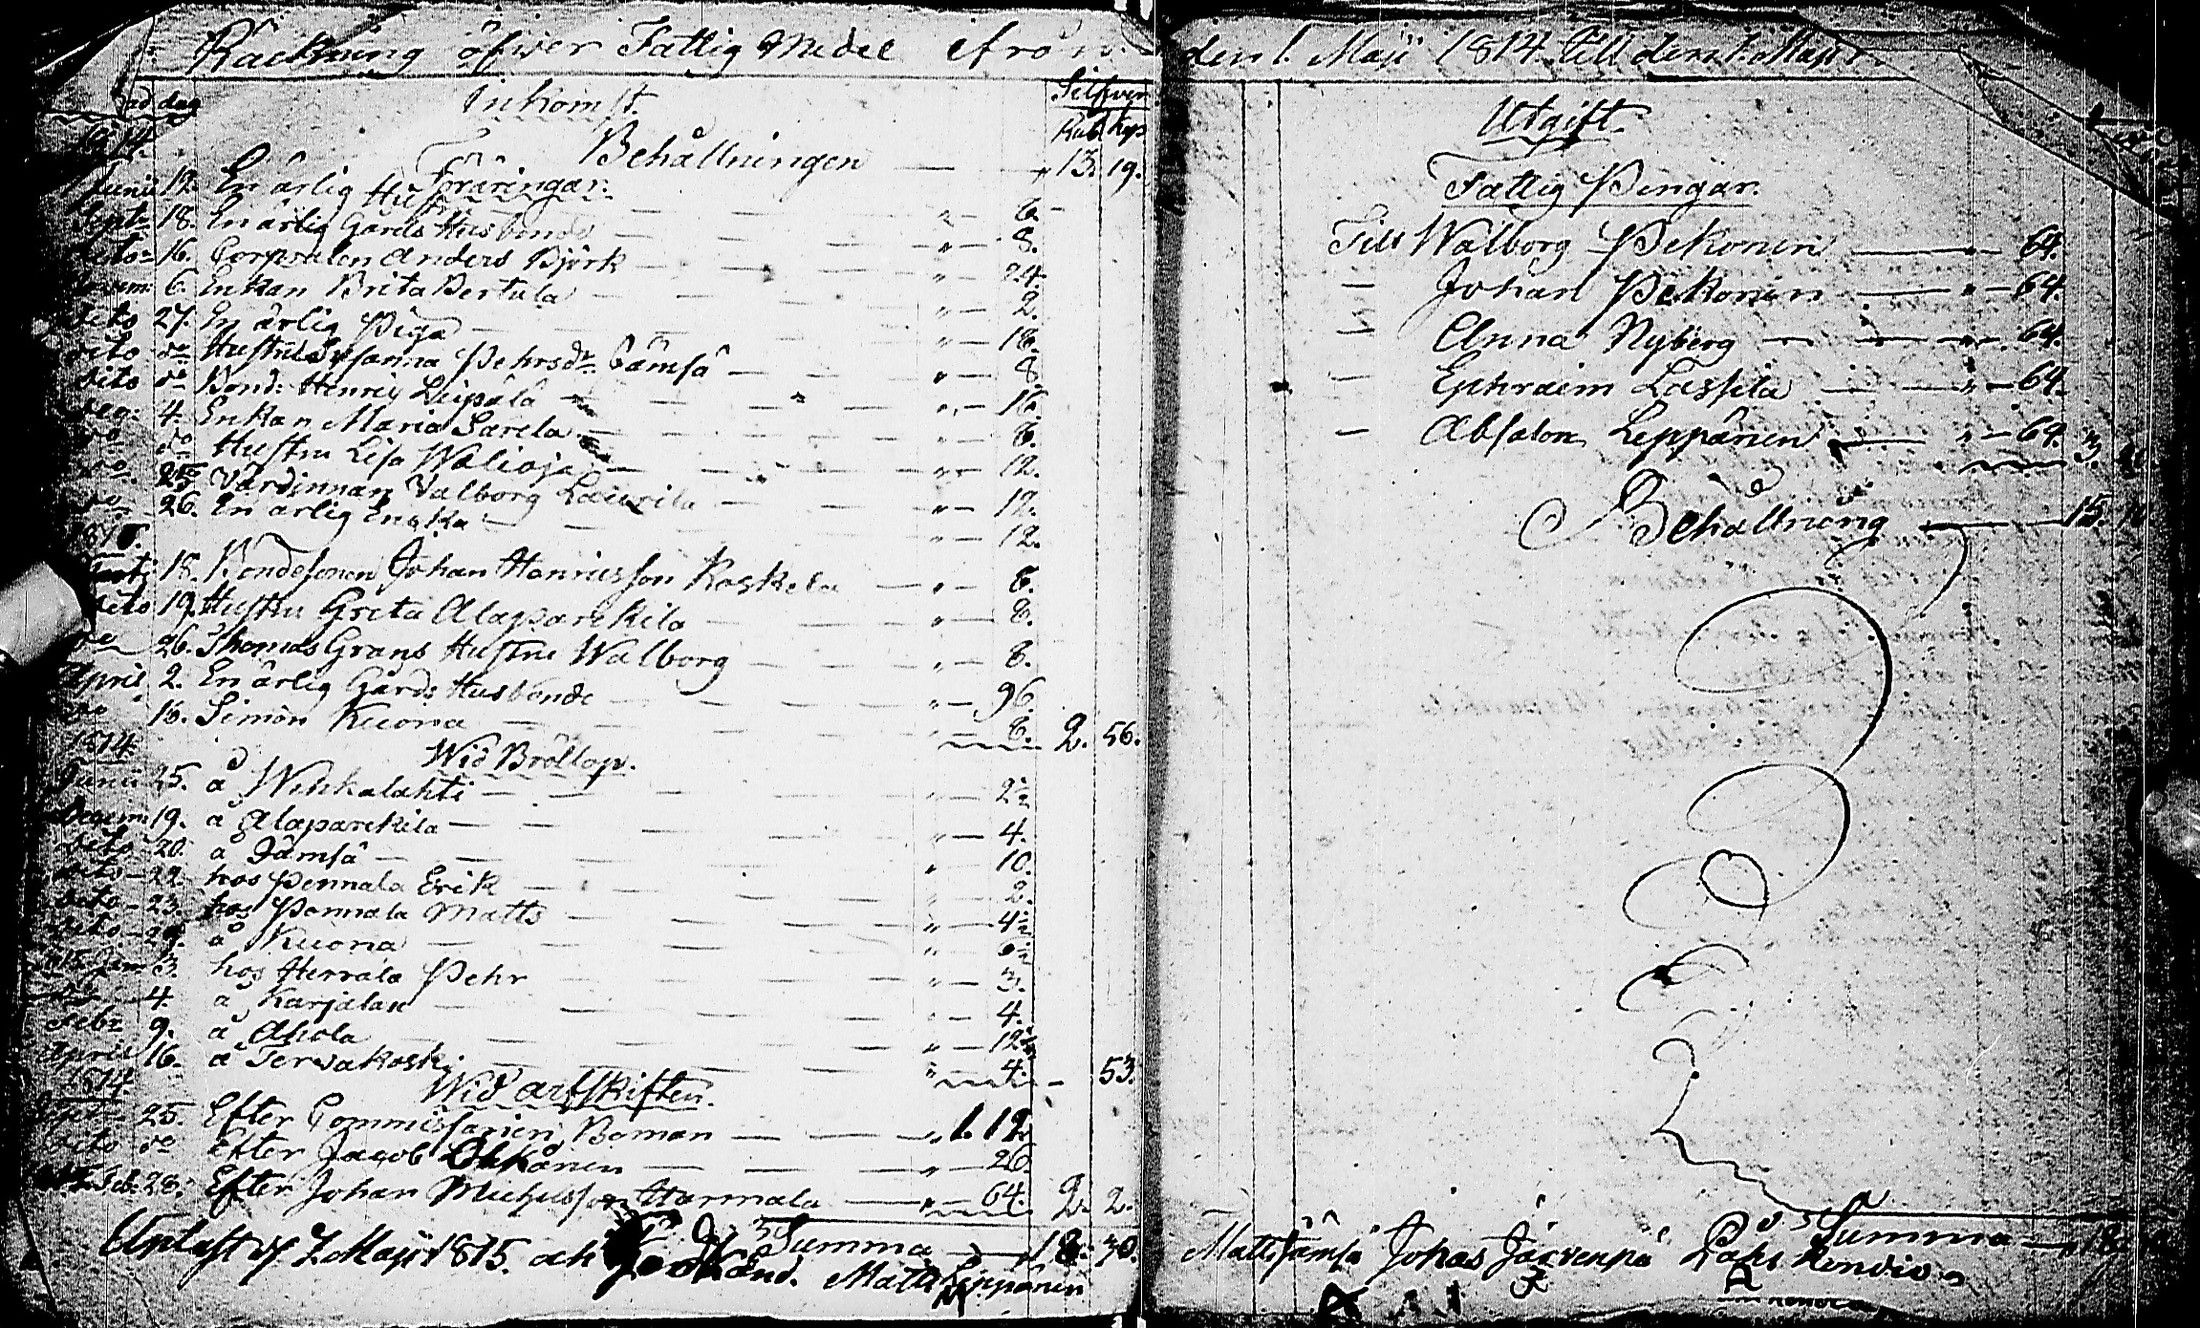 Räckning öfwer Fattig Medel ifrån den 1. Maji 1814 till den 1. Maji
dag Inkomst. Silfver
Rub. kop
1814. Behållningen — 13. 19.
Föräringar.
Junii 12. En ärlig Hustru — 6.
Sept: 18. En ärlig Gårds Husbonde — 8.
16. Corporalen Anders Björk — 24.
6. Enkan Brita Pertula — 2.
dito 27. En ärlig Piga — 16.
dito do Hustru Susanna Pehrsdr. Jämsä — 8
dito do Bond: Henric — 16.
4. Enkan Maria Sarela — 6.
do do Hustru Lisa Walioja — 12.
do 25 Värdinnan Valborg Laurila — 12.
do 26. En ärlig Enska — 12.
1815.
18. Bondesonen Johan Henricsson Koskela — 6.
dito 19. Hustru Greta Alaparckila — 8.
do 26. Thomas Grans Hustru Walborg — 8.
April 2. En ärlig Gårds Husbonde — 96.
do 16. Simon Kuona — 6. 2. 56.
1814 Wid Bröllop.
Junii 25. å Wehkalahti — 2½
Decem: 19. å Alaparckila — 4.
dito 20. å Jämsä — 10.
dito 22. hos Pennala Erik — 2.
dito 23. hos Pennala Matts — 4½
dito 29. å Kuona — 6½
1815 Jan: 3. hos Herrala Pehr — 3.
4. å Karjalan — 4.
Febr 9. å Ahola — 12½
April 16. å Terwakoski — 4. — 53.
1814. Wid Arfskiften.
Sept: 25. Efter Commissarien Boman — 1. 12.
dito do Efter Jacob — 26.
28. Efter Johan Michelsson Harmala — 64. 2. 2.
Summa — 18. 30.
Upläst d. 7. Maji 1815. och Godkänd. Matts Leppänen
Utgift.
Fattig Pengar.
Till Walborg Pekonen — 64.
— Johan Pekonen — 64.
— Anna Nyberg — 64.
— Ephraim Lassila — 64.
— Absalon Leppänen — 64. 3.
Behållning — 15.
Summa — 18
Matts Jämsä Johas Järvenpä